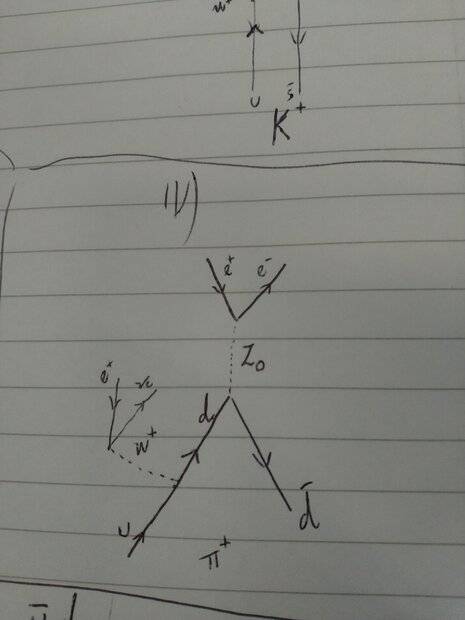 u s̄
K⁺
IV)
e⁺ e⁻
Z₀
e⁺ νe
d
W⁺
d̄
u
π⁺